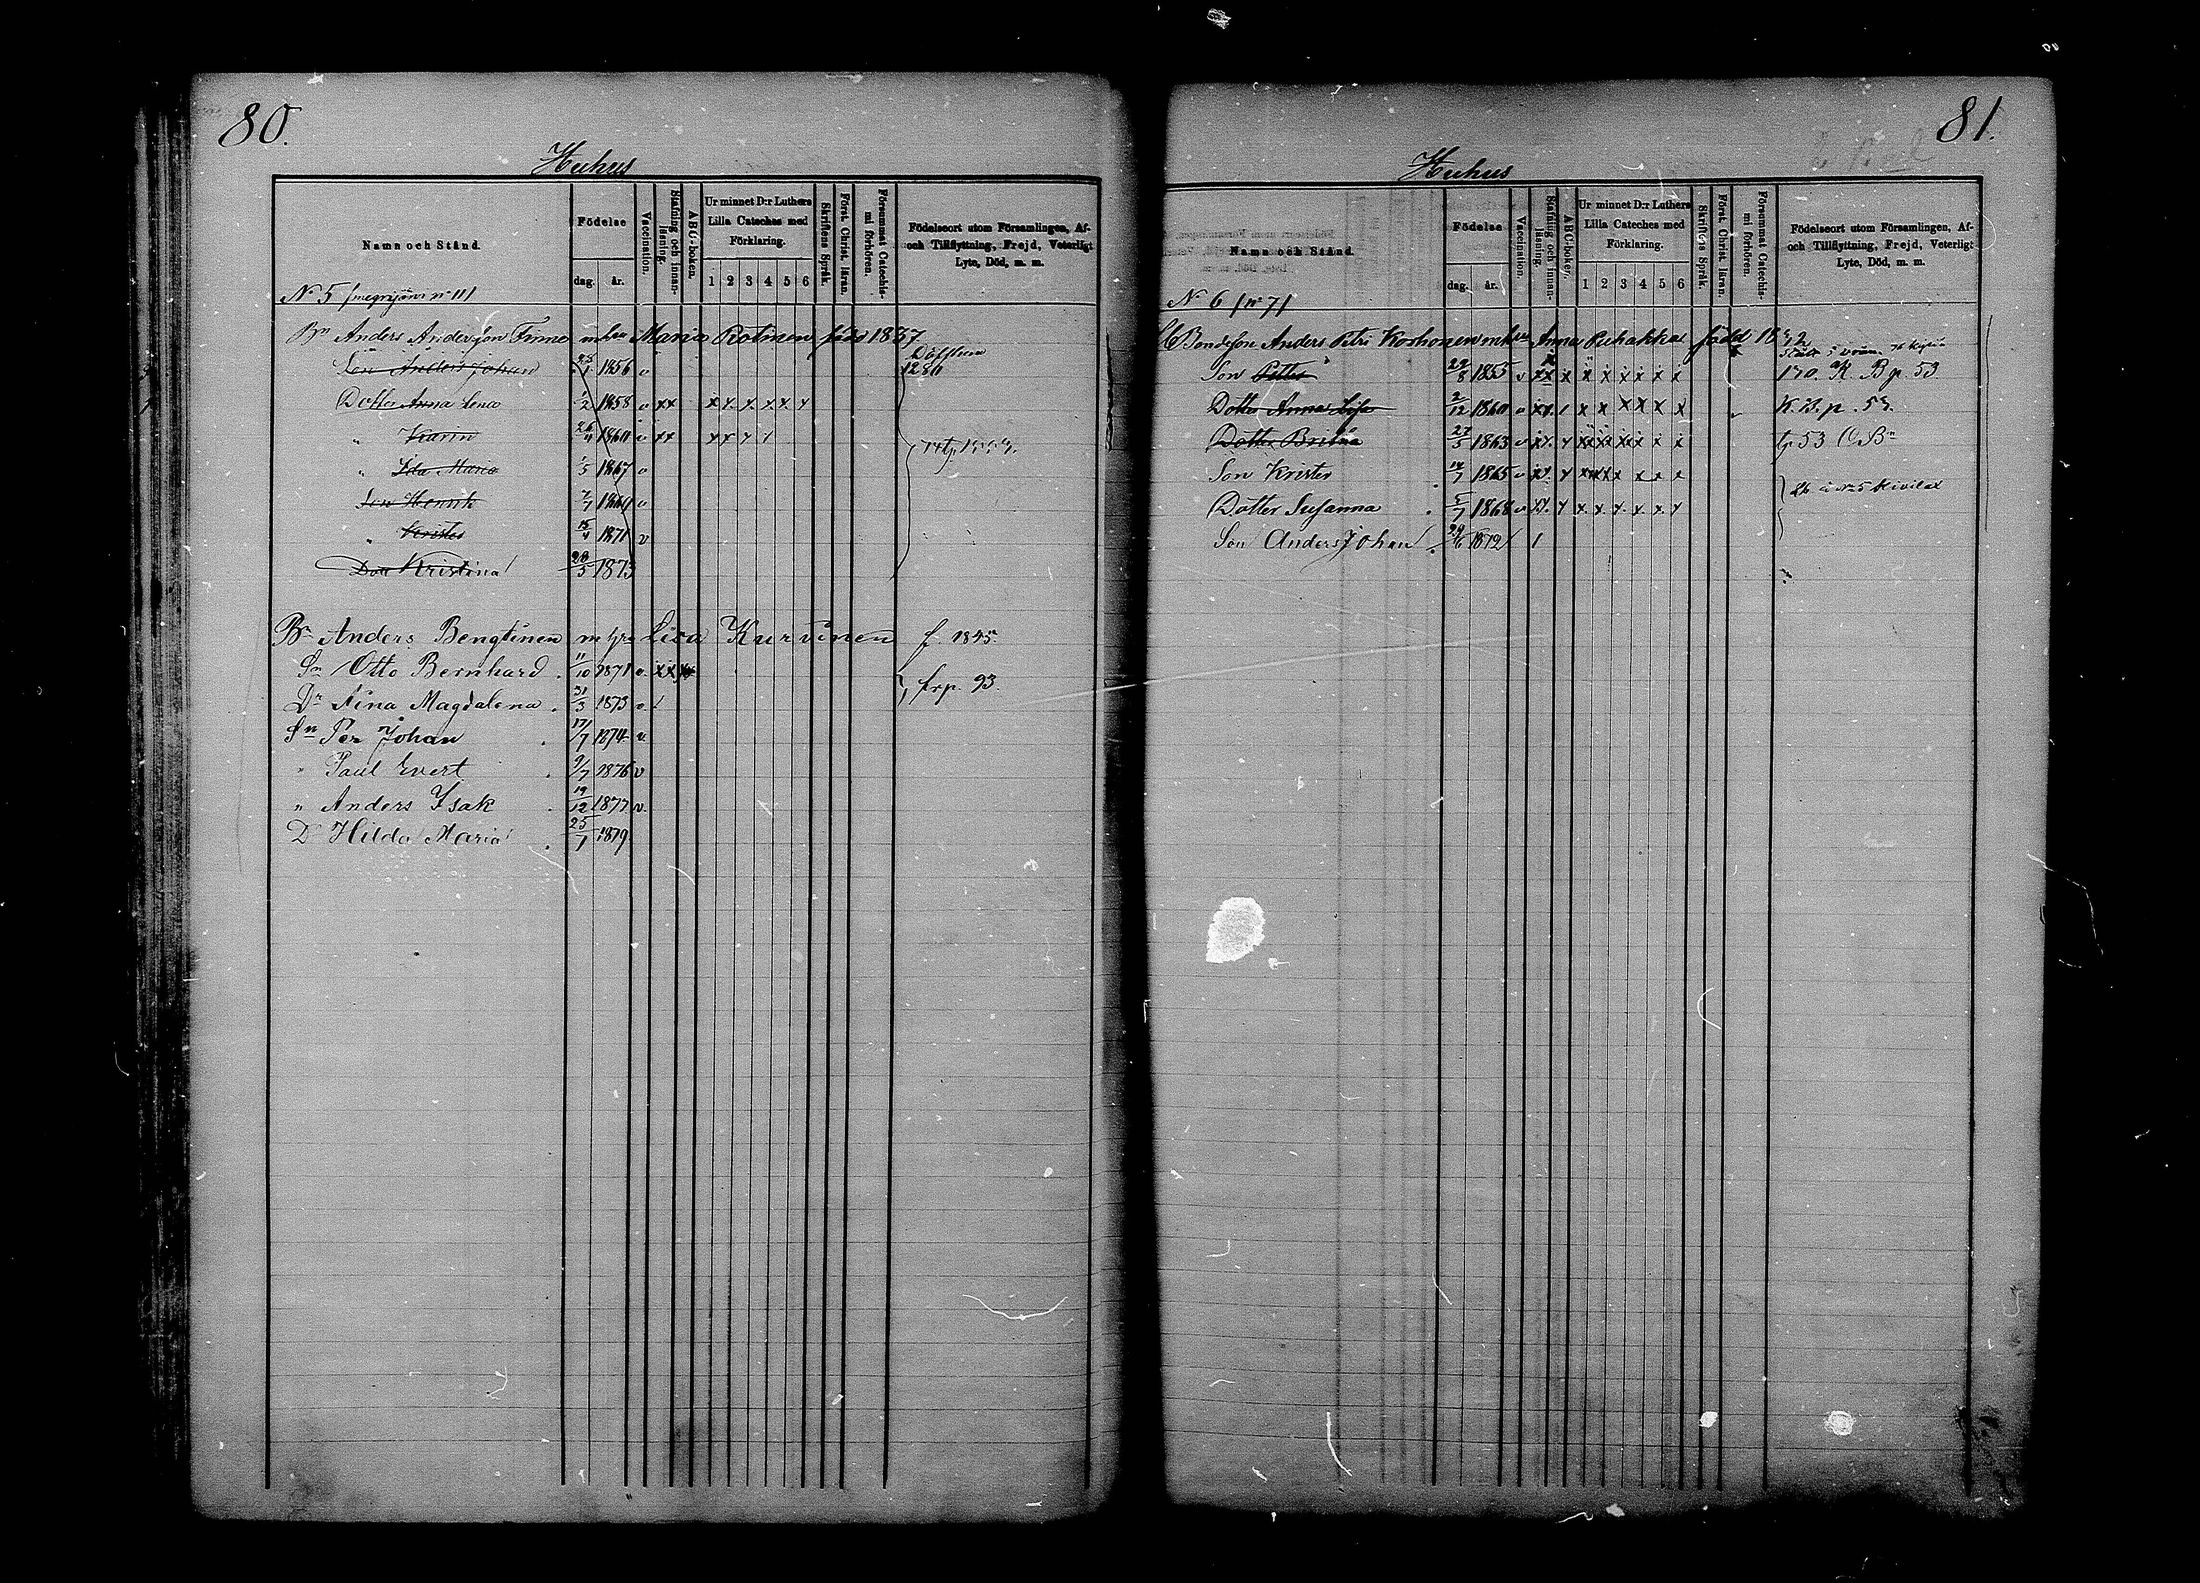 80.
Huhus
Namn och Stånd.
Födelse
dag. år.
Vaccination.
Stafning och innanläsning.
ABC-boken.
Ur minnet D:r Luthers Lilla Cateches med Förklaring.
1 2 3 4 5 6
Skriftens Språk.
Först. Christ. läran.
Försummat Catechismi förhören.
Födelseort utom Församlingen, Af- och Tillflyttning, Frejd, Veterligt Lyte, Död, m. m.
N° 5
Bn Anders Andersson Finne m hu Maria Rotinen född 1837
Son Anders Johan 1856 v
Dotter Anna Lena 1/2 1858 v xx x x x x x x
" Karin v xx x x x x
" Ida Maria 1/5 1867 v
Son Henrik v
" Krister 15/4 1871 v
Dott Kristina 28/5 1873
Bn Anders Bengtinen m hu Lisa Kurvinen f. 1845.
Sn Otto Bernhard 11/10 1871 v. xx
Dr Aina Magdalena 31/3 1873 v. frp. 93.
Sn Per Johan 17/7 1874 v
" Paul Evert 9/7 1876 v
" Anders Isak 19/12 1877 v.
Dr Hilda Maria 25/7 1879
81.
Huhus
Namn och Stånd.
Födelse
dag. år.
Vaccination.
Stafning och innanläsning.
ABC-boken.
Ur minnet D:r Luthers Lilla Cateches med Förklaring.
1 2 3 4 5 6
Skriftens Språk.
Först. Christ. läran.
Försummat Catechismi förhören.
Födelseort utom Församlingen, Af- och Tillflyttning, Frejd, Veterligt Lyte, Död, m. m.
N° 6 /n° 7/
Bondeson Anders Petri Korhonen m hu Anna Puhakka född
Son Petter 1855 v xx x x x x x x x K. B p. 53
Dotter Anna Lisa 2/12 1860 v x x x x x x K. B. p. 53.
Dotter Britha 27/5 1863 v 53
Son Krister 1865 v
Dotter Susanna 5/7 1868 v x x x x x x
Son Anders Johan 1872